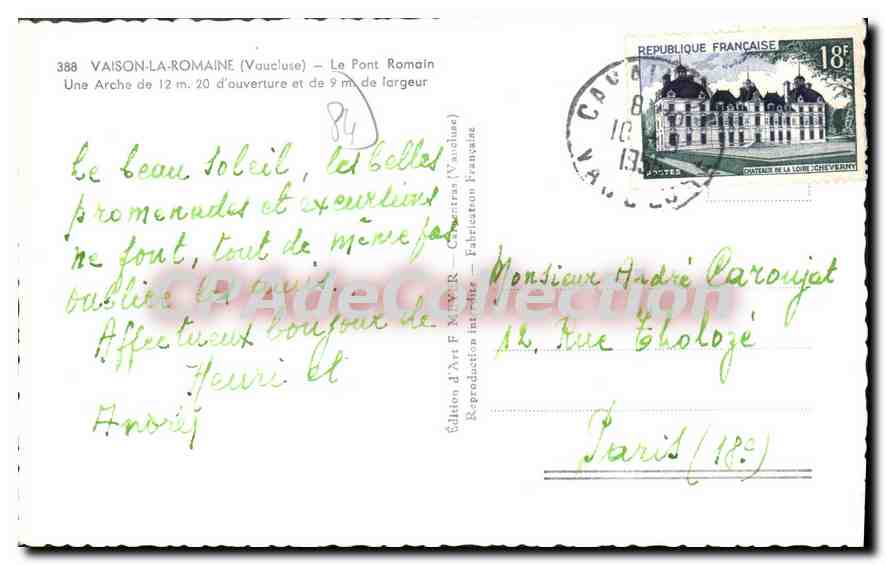 388 VAISON-LA-ROMAINE (Vaucluse) — Le Pont Romain
Une Arche de 12 m. 20 d'ouverture et de 9 m. de largeur
84
Le beau soleil, les belles
promenades et excursions
ne font, tout de même pas,
oublier les amis.
Affectueux bonjour de
Henri et
Andrée
Édition d'Art F. MEYER — Carpentras (Vaucluse)
Reproduction interdite — Fabrication Française
REPUBLIQUE FRANÇAISE
18F
POSTES
CHATEAUX DE LA LOIRE : CHEVERNY
Monsieur André Caroujat
12, Rue Tholozé
Paris (18e)
CPAdeCollection.com